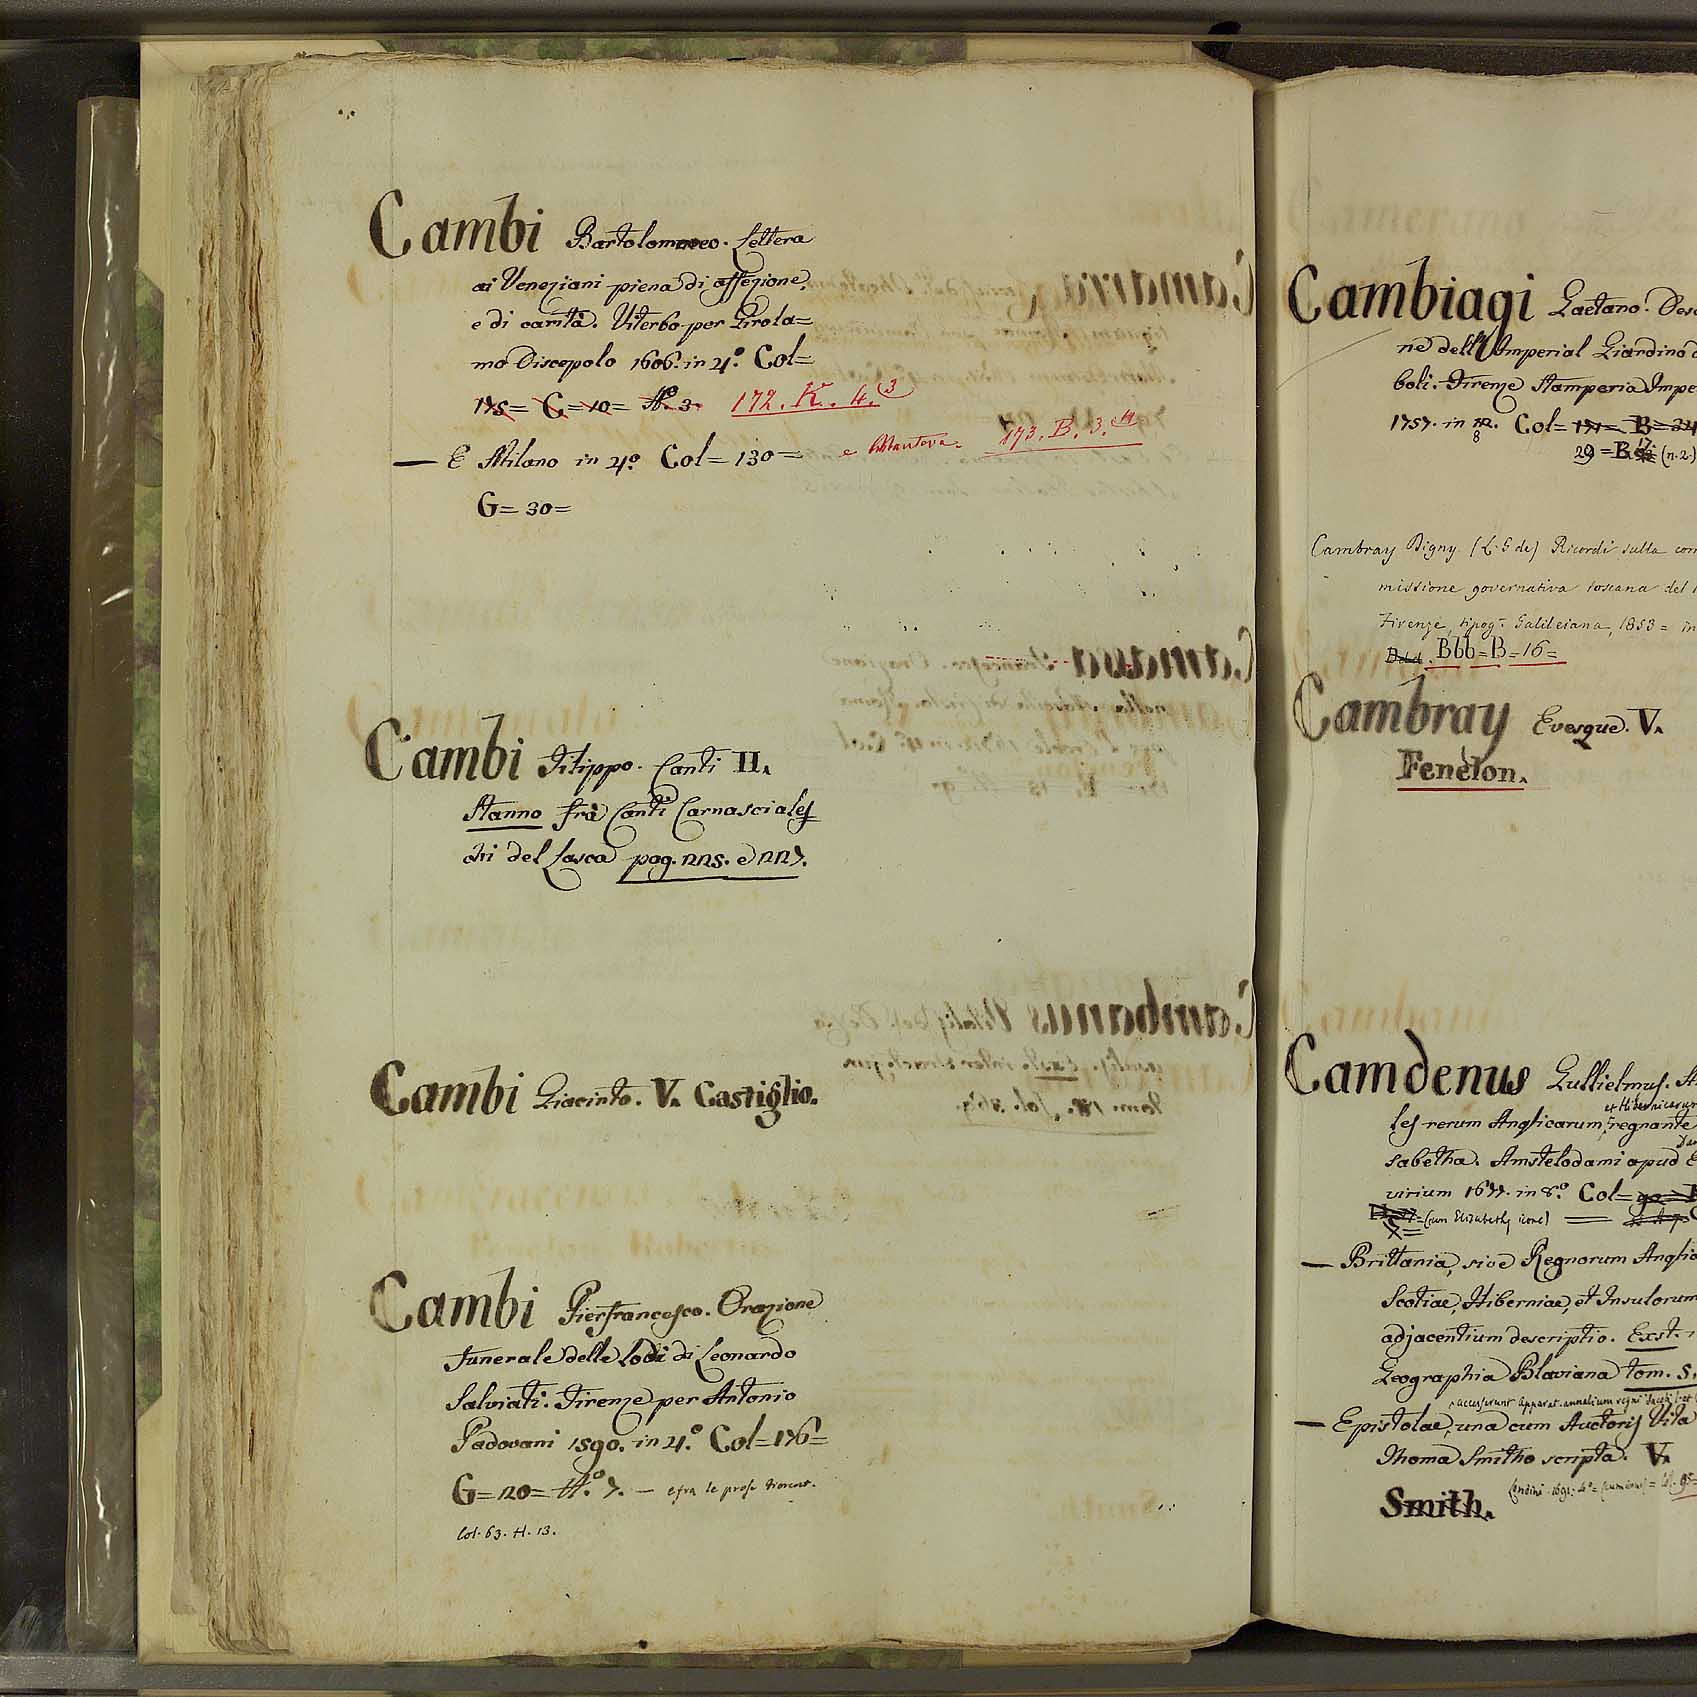 Cambi Bartolommeo. Lettera
ai Veneziani piena di affezione,
e di carità. Viterbo per Girola=
mo Discepolo 1606. in 4.º Col=
175= G=10= Nº 3. 172. K. 4. (3
— E Milano in 4.º Col=130= e Mantova. 173. B. 3.
G=30=
Cambi Filippo. Canti II.
Stanno frà Canti Carnasciales
chi del Lasca pag. 225. e 227.
Cambi Giacinto. V. Castiglio.
Cambi Pierfrancesco. Orazione
funerale delle lodi di Leonardo
Salviati. Firenze per Antonio
Padovani 1590. in 4.º Col=176=
G=20= Nº 7. — e fra le prose fiorent.
Col. 63. H. 13.
Cambiagi Gaetano. Des
ne dell'Imperial Giardino
boli. Firenze Stamperia Impe
1757. in 12. Col= 171= B=34
8
29=B 17 (n.2.)
Cambray Digny (L. G de) Ricordi sulla com
missione governativa toscana del
Firenze, tipogr. Galileiana, 1853= in
Bbb=B=16=
Cambray Evesque. V.
Fenelon.
Camdenus Gullielmus. A
les rerum Anglicarum, et Hibernicarum regnante
sabetha. Amstelodami apud E
virium 1677. in 8.º Col=90=
(cum Elizabethę icone)
— Brittania, sive Regnorum Anglia
Scotiae, Hiberniae, et Insularum
adjacentium descriptio. Exst.
Geographia Blaviana tom. 5.
accesserunt Apparat. annalium regni Jacobi I. et
— Epistolae, una cum Auctoris Vita
Thoma Smitho scripta. V.
Smith. Londini. 1691. 4º